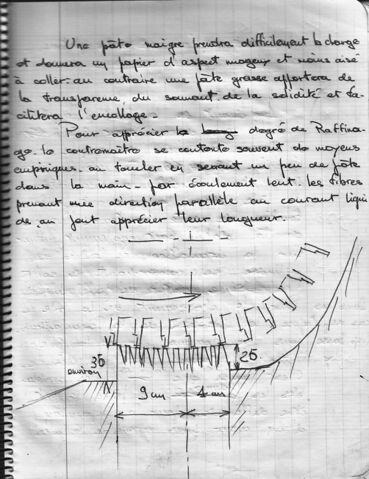 Une pâte maigre prendra difficilement la charge
et donnera un papier d'aspect mageur et moins aisé
à coller. au contraire une pâte grasse apportera de
la transparence, du sonnant, de la solidité et fa-
cilitera l'encollage.
Pour apprécier le degré de Raffina-
ge. le contremaître se contente souvent de moyens
empiriques. au toucher en serrant un peu de pâte
dans la main - par écoulement lent. les fibres
prenant une direction parallèle au courant liqui-
de. on peut apprécier leur longueur.
36
environ
26
9 cm
4 cm